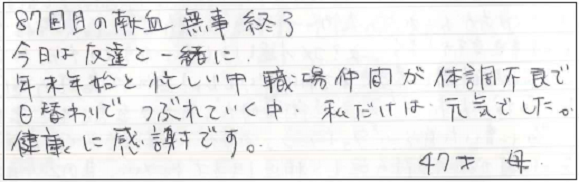 87回目の献血 無事 終了
今日は友達と一緒に.
年末年始と忙しい中 職場仲間が体調不良で
日替わりで つぶれていく中. 私だけは 元気でした。
健康に感謝です。
47才 母.